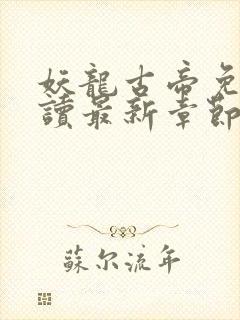 妖龍古帝免
讀最新章節
蘇尔流年